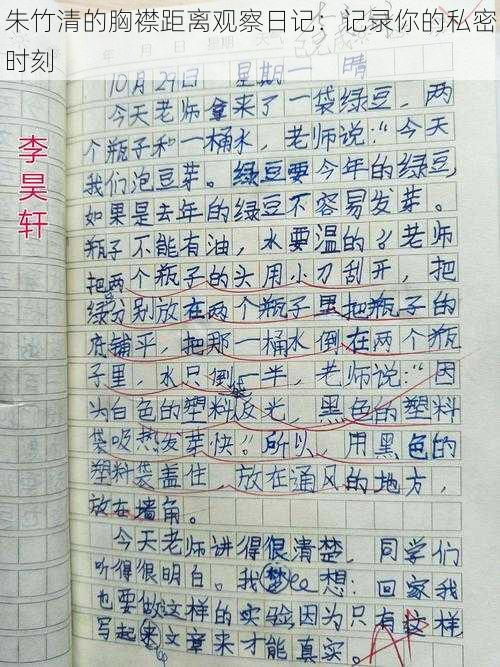 朱竹清的胸襟距离观察日记：记录你的私密
时刻
10月29日 星期一 晴
李昊轩
今天老师拿来了一袋绿豆，两
个瓶子和一桶水，老师说：“今天
我们泡豆芽。绿豆要今年的绿豆，
如果是去年的绿豆不容易发芽。
瓶子不能有油，水要温的。”老师
把两个瓶子的头用小刀刮开，把
绿分别放在两个瓶子里把瓶子的
底铺平，把那一桶水倒在两个瓶
子里，水只倒一半，老师说：“因
为白色的塑料反光，黑色的塑料
袋吸热发芽快。”所以，用黑色的
塑料袋盖住，放在通风的地方，
放在墙角。
今天老师讲得很清楚，同学们
听得很明白。我想：回家我
也要做这样的实验因为只有这样
写起来文章来才能真实。